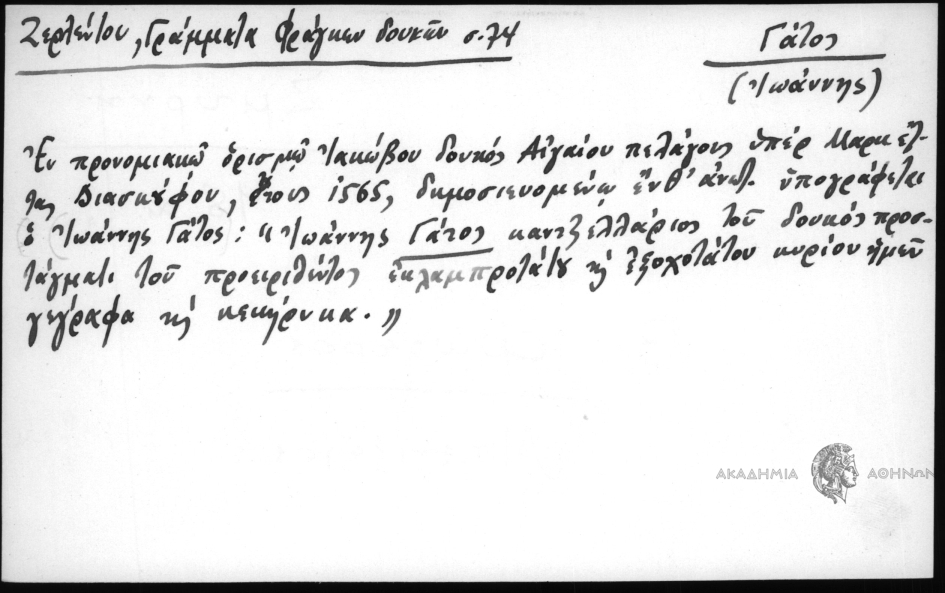 Ζερλέντου, Γράμματα Φράγκων δουκῶν σ. 74
Γάτος
(Ἰωάννης)
Ἐν προνομιακῷ ὁρισμῷ Ἰακώβου δουκός Αἰγαίου πελάγους ὑπέρ Μαρκέτ-
τας Διασκούφου, ἔτους 1565, δημοσιευομένῳ ἔνθ' ἀνωτ. ὑπογράφεται
ὁ Ἰωάννης Γάτος: "Ἰωάννης Γάτος καντζελλάριος τοῦ δουκός προσ-
τάγματι τοῦ προειρηθέντος ἐκλαμπροτάτου κή ἐξοχοτάτου κυρίου ἡμῶν
γεγράφα κή κεκήρυκα."
ΑΚΑΔΗΜΙΑ ΑΘΗΝΩΝ